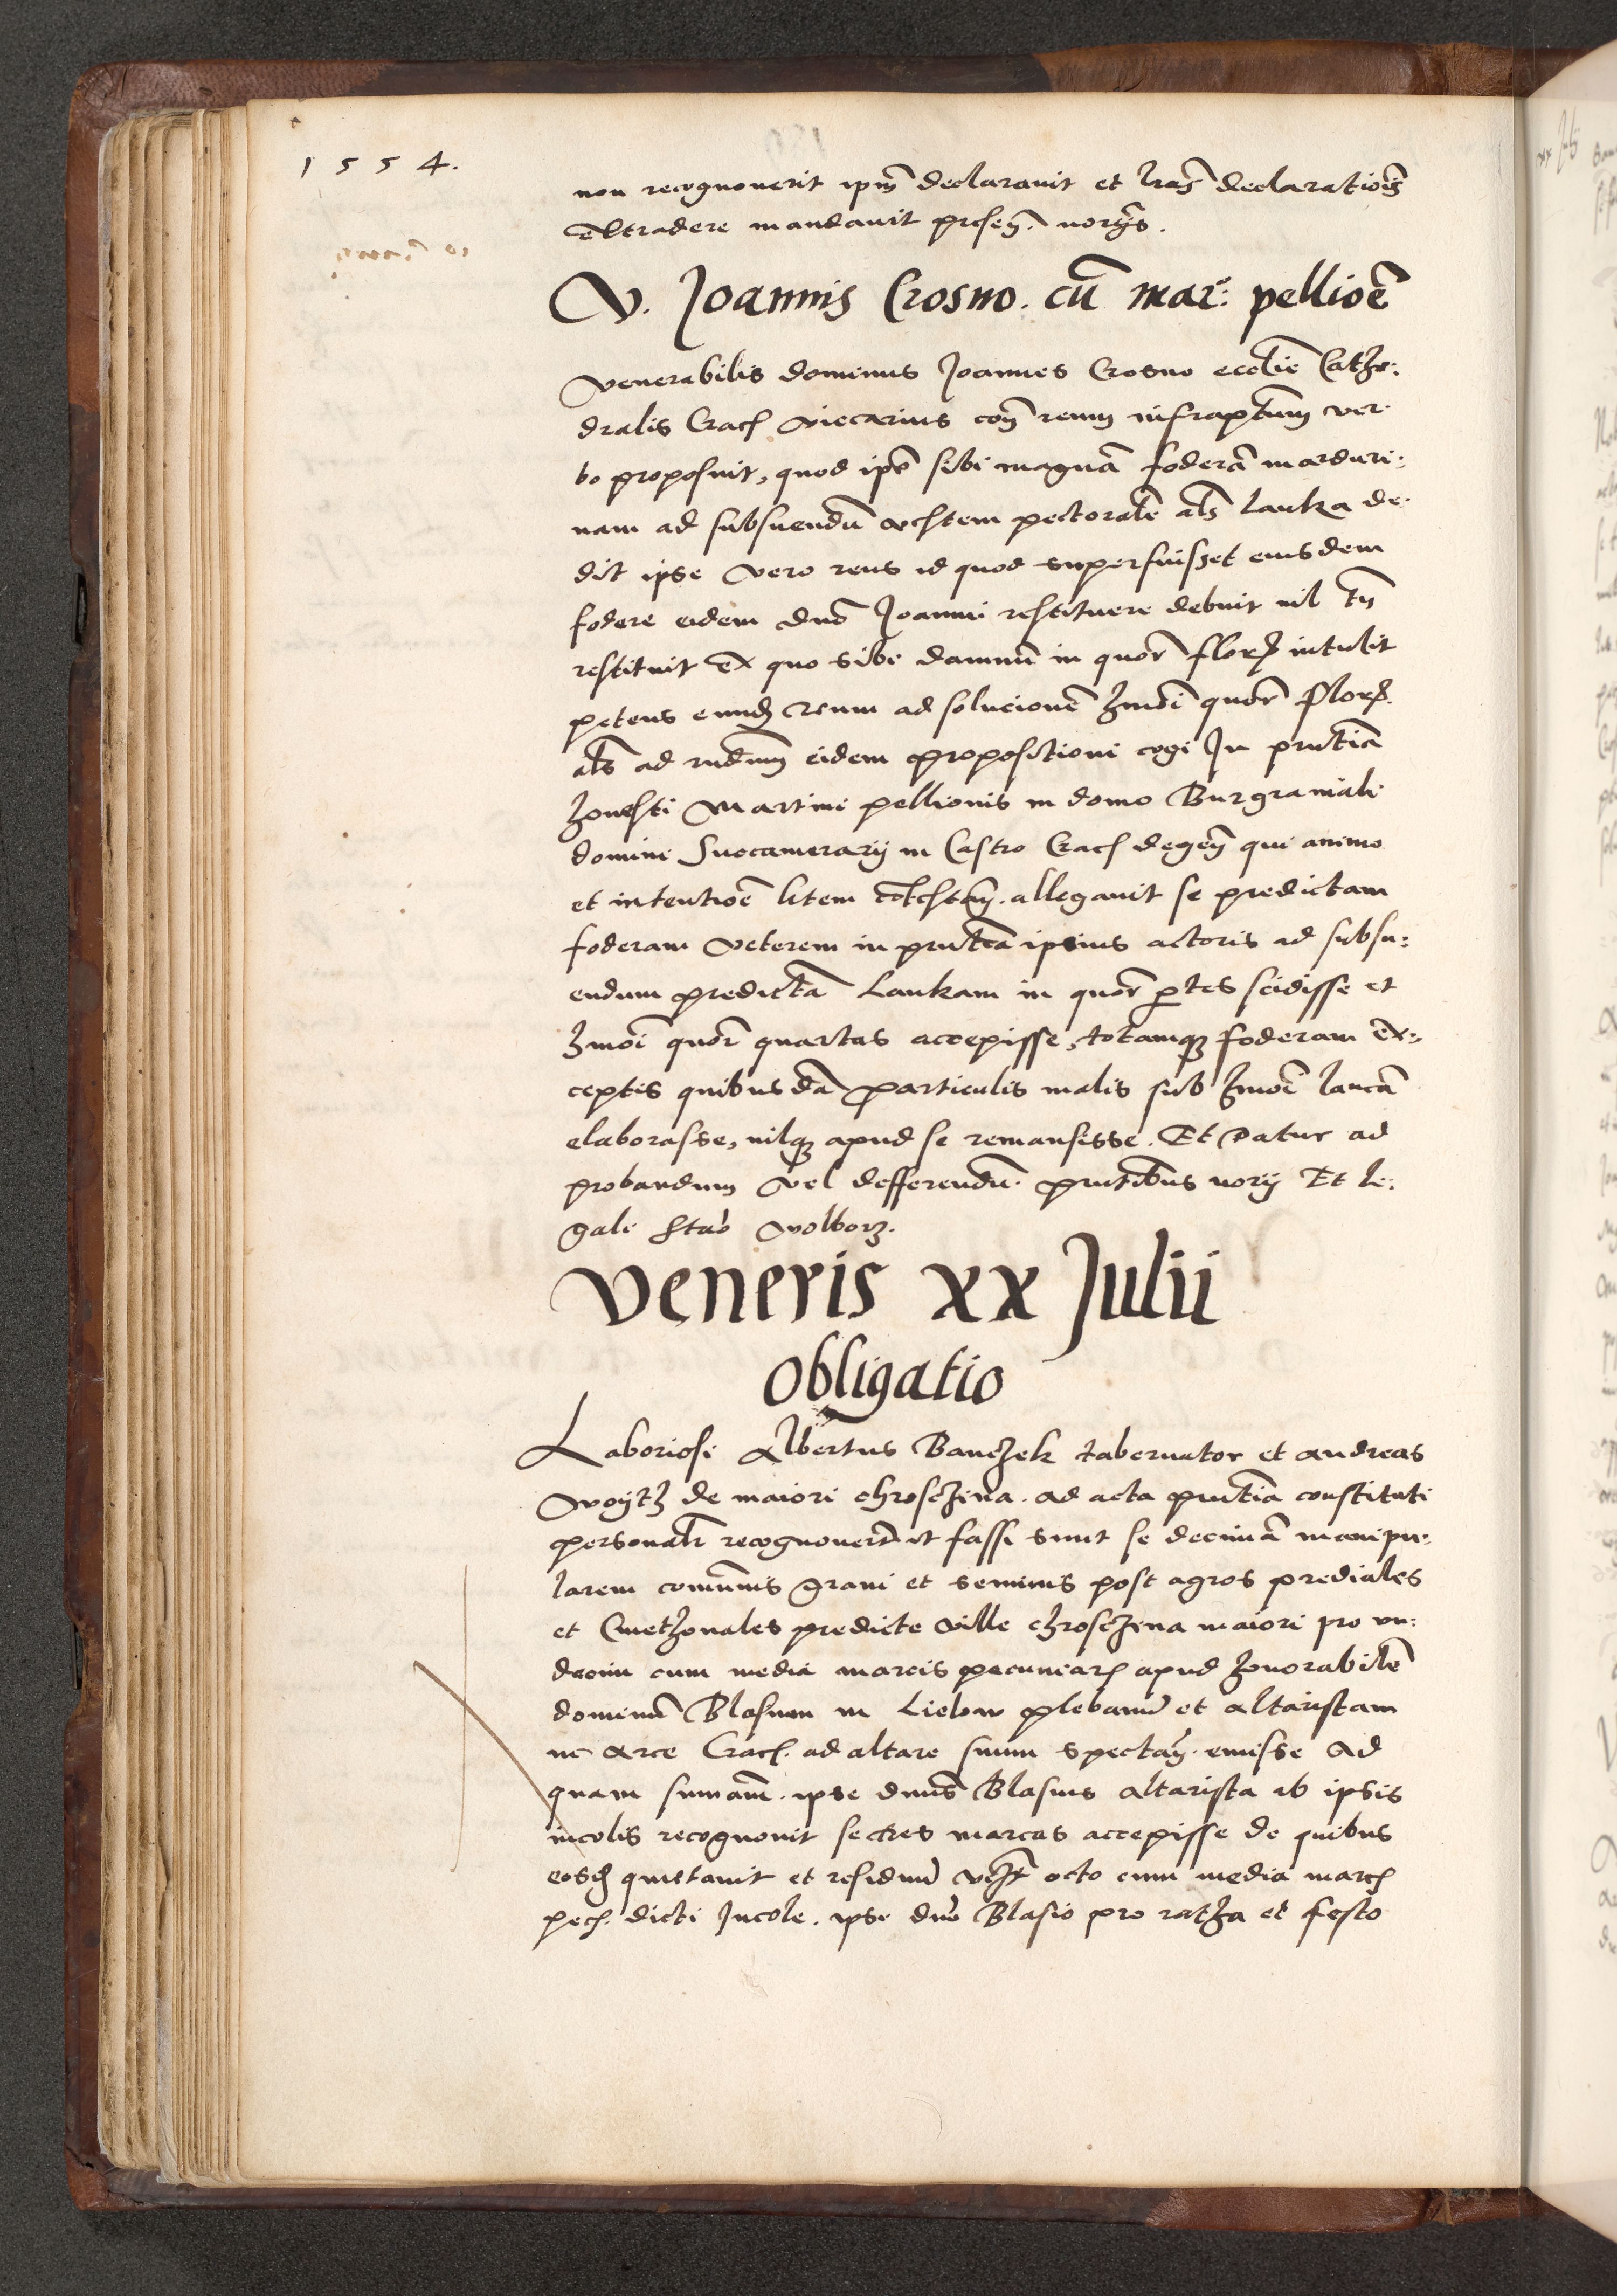 1554.
non recognouerit ipm̃ declarauit et l̃ras declaratiois̃
extradere mandauit presen̄. norijs.
V. Joannis Crosno. cū mar: pellioē
Venerabilis dominus Joannes Crosno ecclie Cathe:
dralis Crac̃ viccarius con̄ reum infrascptum ver
bo proposuit, quod ipe sibi magnā foderā marduri:
nam ad subsuendū vestem pectoralē al̃s Lauka de
dit ipse vero reus id quod superfuisset eiusdem
fodere eidem dno Joanni restituere debuit nil tn̄
restituit ex quo sibi damnū in quor̃ flor̃ intulit
petens eund̃ reum ad solucionē hmoi quor̃ Flor̃.
al̃s ad rndm̄ eidem propositioni cogi In pn̄tia
honesti Martini pellionis in domo Burgrabiali
domini Succamerarij in Castro Crac̃ degen̄ qui animo
et intentioē litem contestan̄. allegauit se predictam
foderam veterem in pn̄tia ipsius actoris ad subsu:
endum predictā Laukam in quor̃ ptes scidisse et
hmoi quor̃ quartas accepisse, totamq; foderam ex:
ceptis quibusdā particulis malis sub hmoi laucā
elaborasse, nilq; apud se remansisse. Et datur ad
probandum vel defferendū. pn̄tibus norij Et le:
gale Stao Wolborz.
Veneris XX Julii
Obligatio
Laboriosi Albertus Banczek tabernator et Andreas
Woyth de maiori chrosczina. ad acta pn̄tia constituti
personalr̃ recognouerūt et fassi sunt se decimā manipu:
larem communis grani et seminis post agros prediales
et Cmethonales predicte ville chrosczina maiori pro vn:
decim cum media marcis pecuniar̃ apud honorabilē
dominū Blasium in Lielow plebanū et altaristam
in arce Crac̃. ad altare suum spectan̄. emisse Ad
quam summam. ipse dnus Blasius altarista ab ipsis
incolis recognouit se tres marcas accepisse de quibus
eosd̃ quietauit et residuū vz̃ octo cum media marc̃
pec̃. dicti Incole. ipsi dno Blasio pro ratha et festo